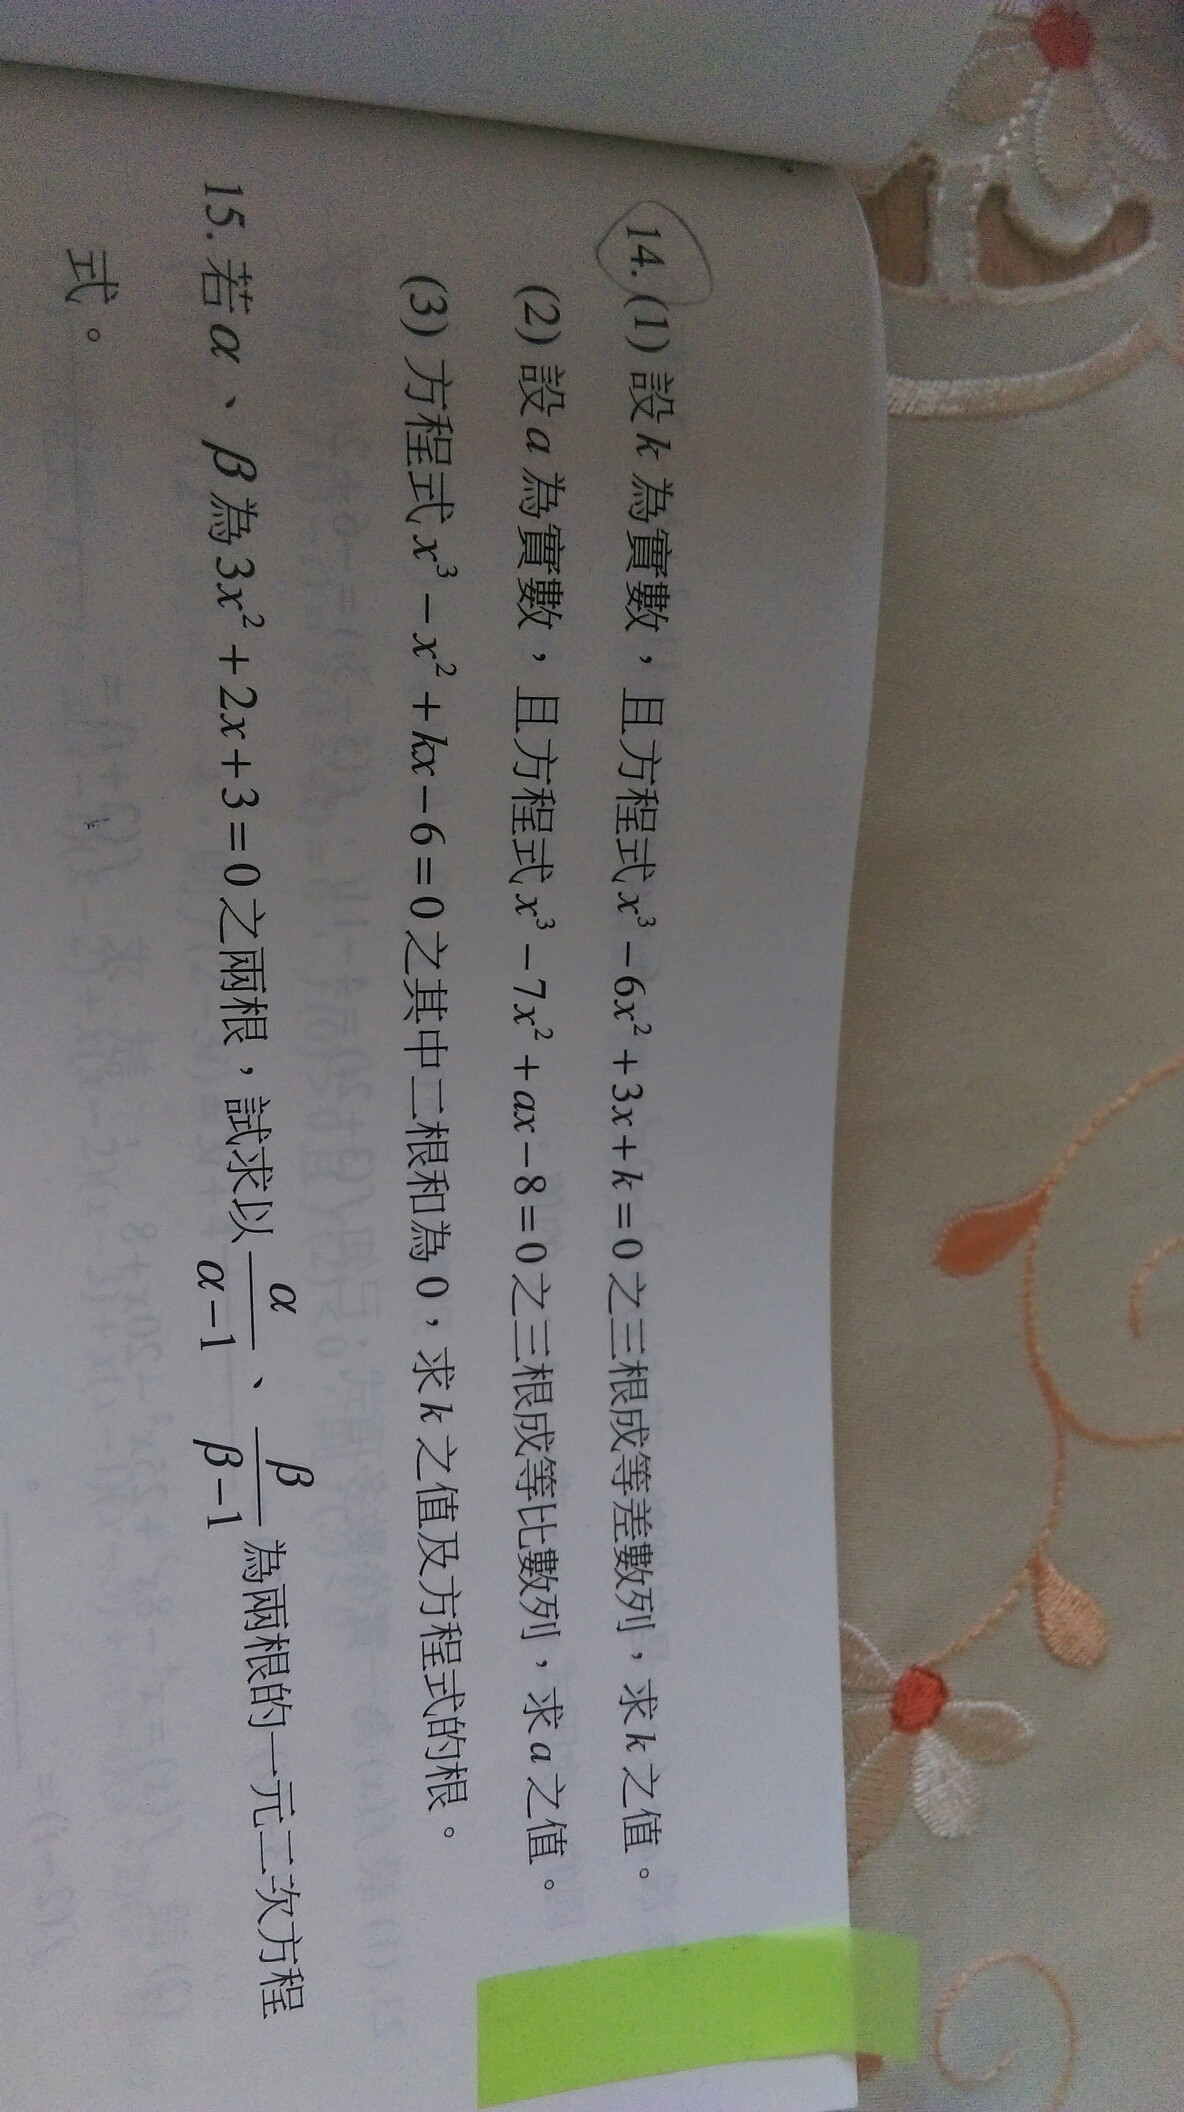 14.(1) 設 k 為實數，且方程式 x³－6x²＋3x＋k＝0 之三根成等差數列，求 k 之值。
(2) 設 a 為實數，且方程式 x³－7x²＋ax－8＝0 之三根成等比數列，求 a 之值。
(3) 方程式 x³－x²＋kx－6＝0 之其中二根和為 0，求 k 之值及方程式的根。
15. 若 α、β 為 3x²＋2x＋3＝0 之兩根，試求以 α/(α－1)、β/(β－1) 為兩根的一元二次方程
式。